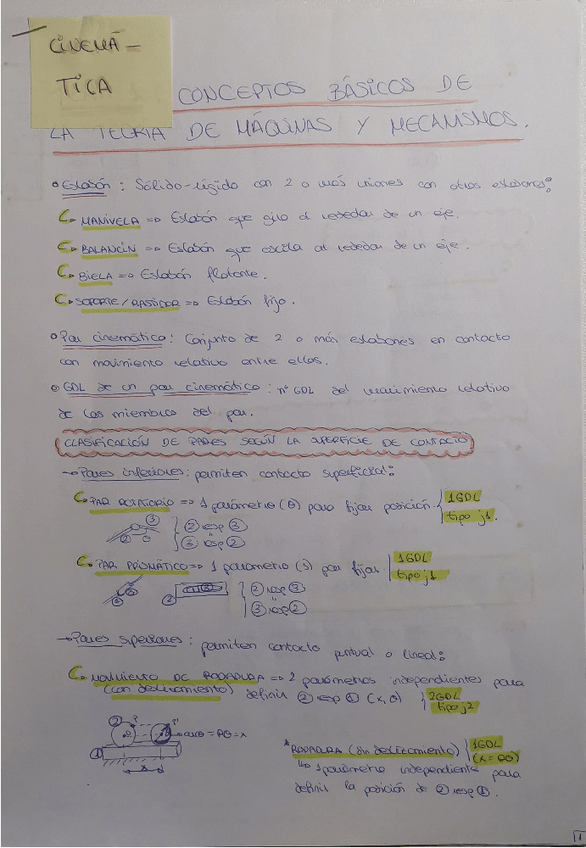 CINEMÁ-
TICA
CONCEPTOS BÁSICOS DE
LA TEORÍA DE MÁQUINAS Y MECANISMOS.
• Eslabón: Sólido-rígido con 2 o más uniones con otros eslabones:
MANIVELA => Eslabón que gira al rededor de un eje.
BALANCÍN => Eslabón que oscila al rededor de un eje.
BIELA => Eslabón flotante.
SOPORTE/BASTIDOR => Eslabón fijo.
• Par cinemático: Conjunto de 2 o más eslabones en contacto
con movimiento relativo entre ellos.
• GDL de un par cinemático: nº GDL del movimiento relativo
de los miembros del par.
CLASIFICACIÓN DE PARES SEGÚN LA SUPERFICIE DE CONTACTO
→ Pares inferiores: permiten contacto superficial:
PAR ROTATORIO => 1 parámetro (θ) para fijar posición. 1GDL
tipo j1.
3 2 resp 3
2
3 resp 2
PAR PRISMÁTICO => 1 parámetro (s) para fijar 1GDL
tipo j1
2 2 resp 3
3 resp 2
→ Pares superiores: permiten contacto puntual o lineal:
MOVIMIENTO DE RODADURA => 2 parámetros independientes para
(con deslizamiento) definir 2 resp 1 (x, θ) 2GDL
tipo j2
2 = Rθ = x
1
* RODADURA (sin deslizamiento) 1GDL
(x = Rθ)
↳ 1 parámetro independiente para
definir la posición de 2 resp 1.
1